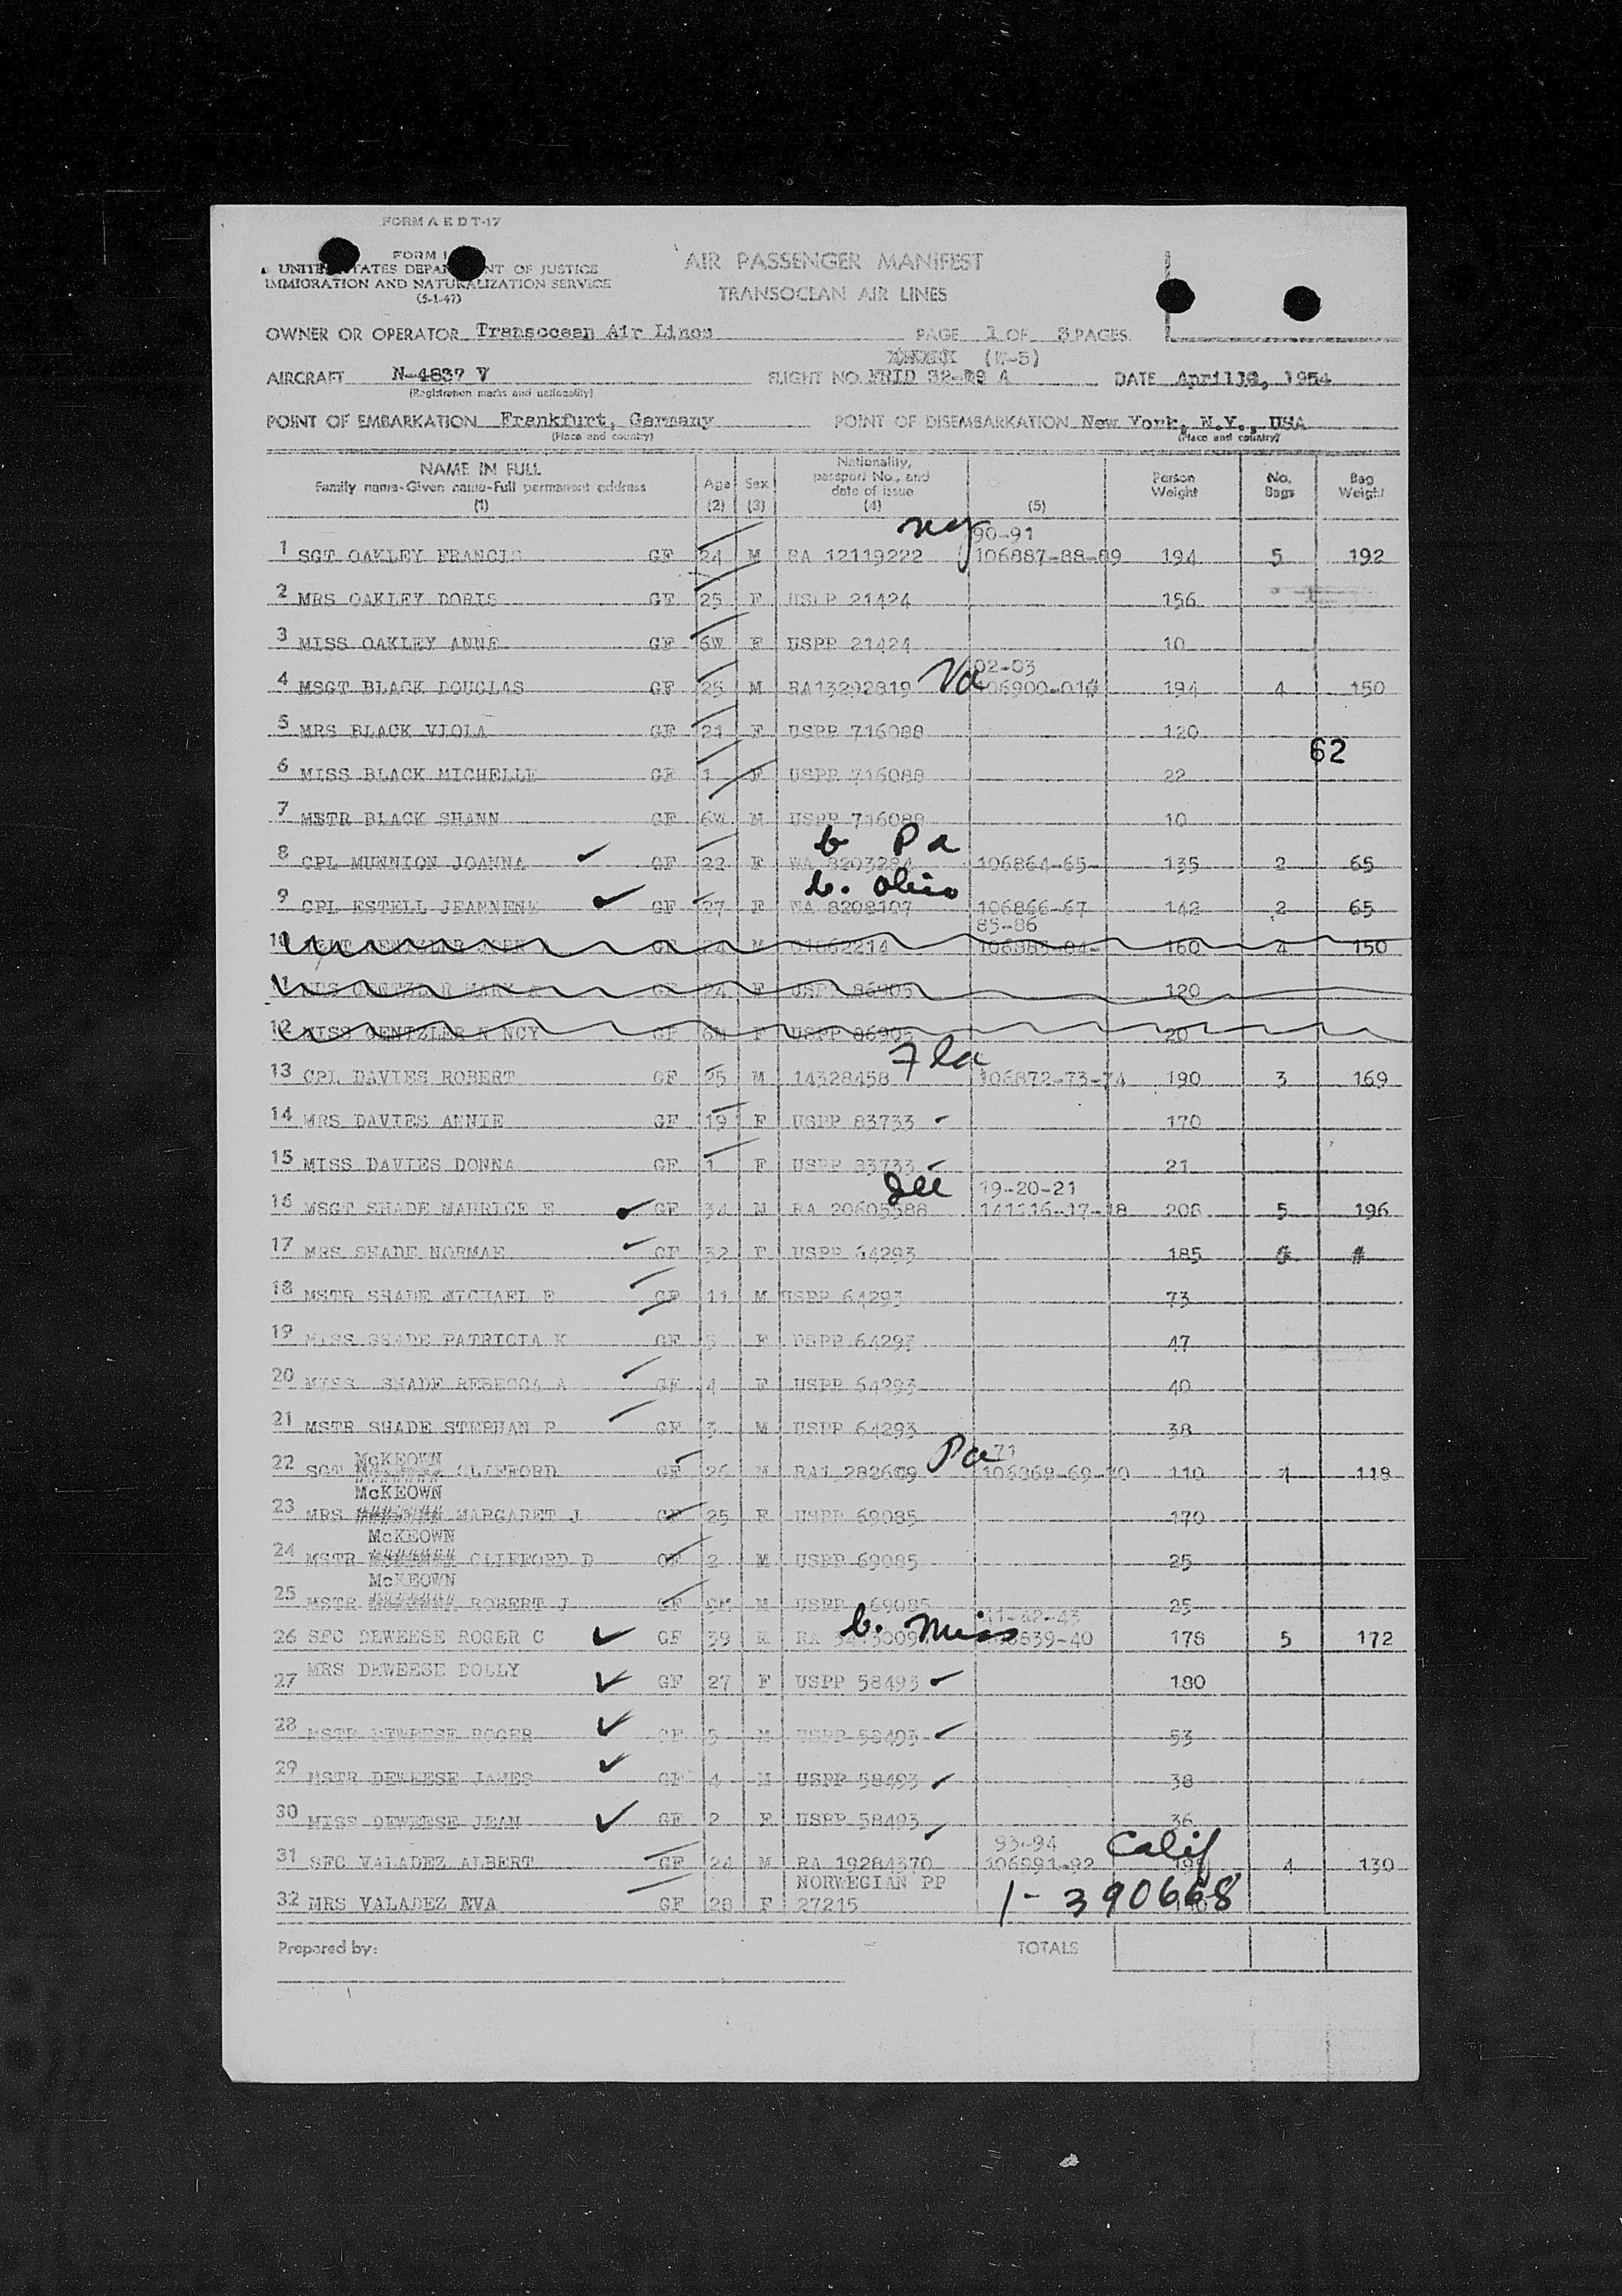 FORM A E D T-17
FORM I
UNITED STATES DEPARTMENT OF JUSTICE
IMMIGRATION AND NATURALIZATION SERVICE
(5-1-47)
AIR PASSENGER MANIFEST
TRANSOCEAN AIR LINES
OWNER OR OPERATOR Transocean Air Lines PAGE 1 OF 3 PAGES
(W-5)
AIRCRAFT N-4837 V FLIGHT NO. FRID 32- A DATE April 1954
(Registration marks and nationality)
POINT OF EMBARKATION Frankfurt, Germany POINT OF DISEMBARKATION New York, N.Y., USA
(Place and country) (Place and country)
NAME IN FULL Family name-Given name-Full permanent address (1) Age (2) Sex (3) Nationality, passport No., and date of issue (4) (5) Person Weight No. Bags Bag Weight
ny 90-91
1 SGT OAKLEY FRANCIS GF 24 M RA 12119222 106887-88-89 194 5 192
2 MRS OAKLEY DORIS GF 25 F USPP 21424 156
3 MISS OAKLEY ANNE GF 6W F USPP 21424 10
Va 02-03
4 MSGT BLACK DOUGLAS GF 25 M RA13292819 106900-01# 194 4 150
5 MRS BLACK VIOLA GF 21 F USPP 716088 120
62
6 MISS BLACK MICHELLE GF 1 F USPP 716088 22
7 MSTR BLACK SHANN GF 6W M USPP 716088 10
b Pa
8 CPL MUNNION JOANNA GF 22 F WA 8203284 106864-65- 135 2 65
b. Ohio
9 CPL ESTELL JEANNENE GF 27 F WA 8208107 106866-67 142 2 65
85-86
10 GF 24 M 160 4 150
11 GF 24 F USPP 86905 120
12 MISS GENTZLER NANCY GF F USPP 86905 20
Fla
13 CPL DAVIES ROBERT GF 25 M 14328458 106872-73-74 190 3 169
14 MRS DAVIES ANNIE GF 19 F USPP 83733 170
15 MISS DAVIES DONNA GF 1 F USPP 83733 21
Ill 19-20-21
16 MSGT SHADE MAURICE E GF 34 M RA 20605588 141116-17-18 208 5 196
17 MRS SHADE NORMAE GF 32 F USPP 64293 185 # #
18 MSTR SHADE MICHAEL E GF 11 M USPP 64293 73
19 MISS SHADE PATRICIA K GF 5 F USPP 64293 47
20 MISS SHADE REBECCA A GF 4 F USPP 64293 40
21 MSTR SHADE STEPHAN P GF 3 M USPP 64293 38
McKEOWN Pa 71
22 SGT CLIFFORD GF 26 M 106868-69-70 110 4 118
McKEOWN
23 MRS ####### MARGARET J GF 25 F USPP 69085 170
McKEOWN
24 MSTR ####### CLIFFORD D GF 2 M USPP 69085 25
McKEOWN
25 MSTR ####### ROBERT J GF 9M M USPP 69085 25
b. Miss 41-42-43
26 SFC DEWEESE ROGER C GF 39 M RA 39-40 178 5 172
27 MRS DEWEESE DOLLY GF 27 F USPP 58493 180
28 MSTR DEWEESE ROGER GF 5 M USPP 58493 53
29 MSTR DEWEESE JAMES GF 4 M USPP 58493 38
30 MISS DEWEESE JEAN GF 2 F USPP 58493 36
93-94 Calif
31 SFC VALADEZ ALBERT GF 24 M RA 19284370 106891-92 4 130
NORWEGIAN PP
32 MRS VALADEZ EVA GF 28 F 27215 1-390668
Prepared by: TOTALS